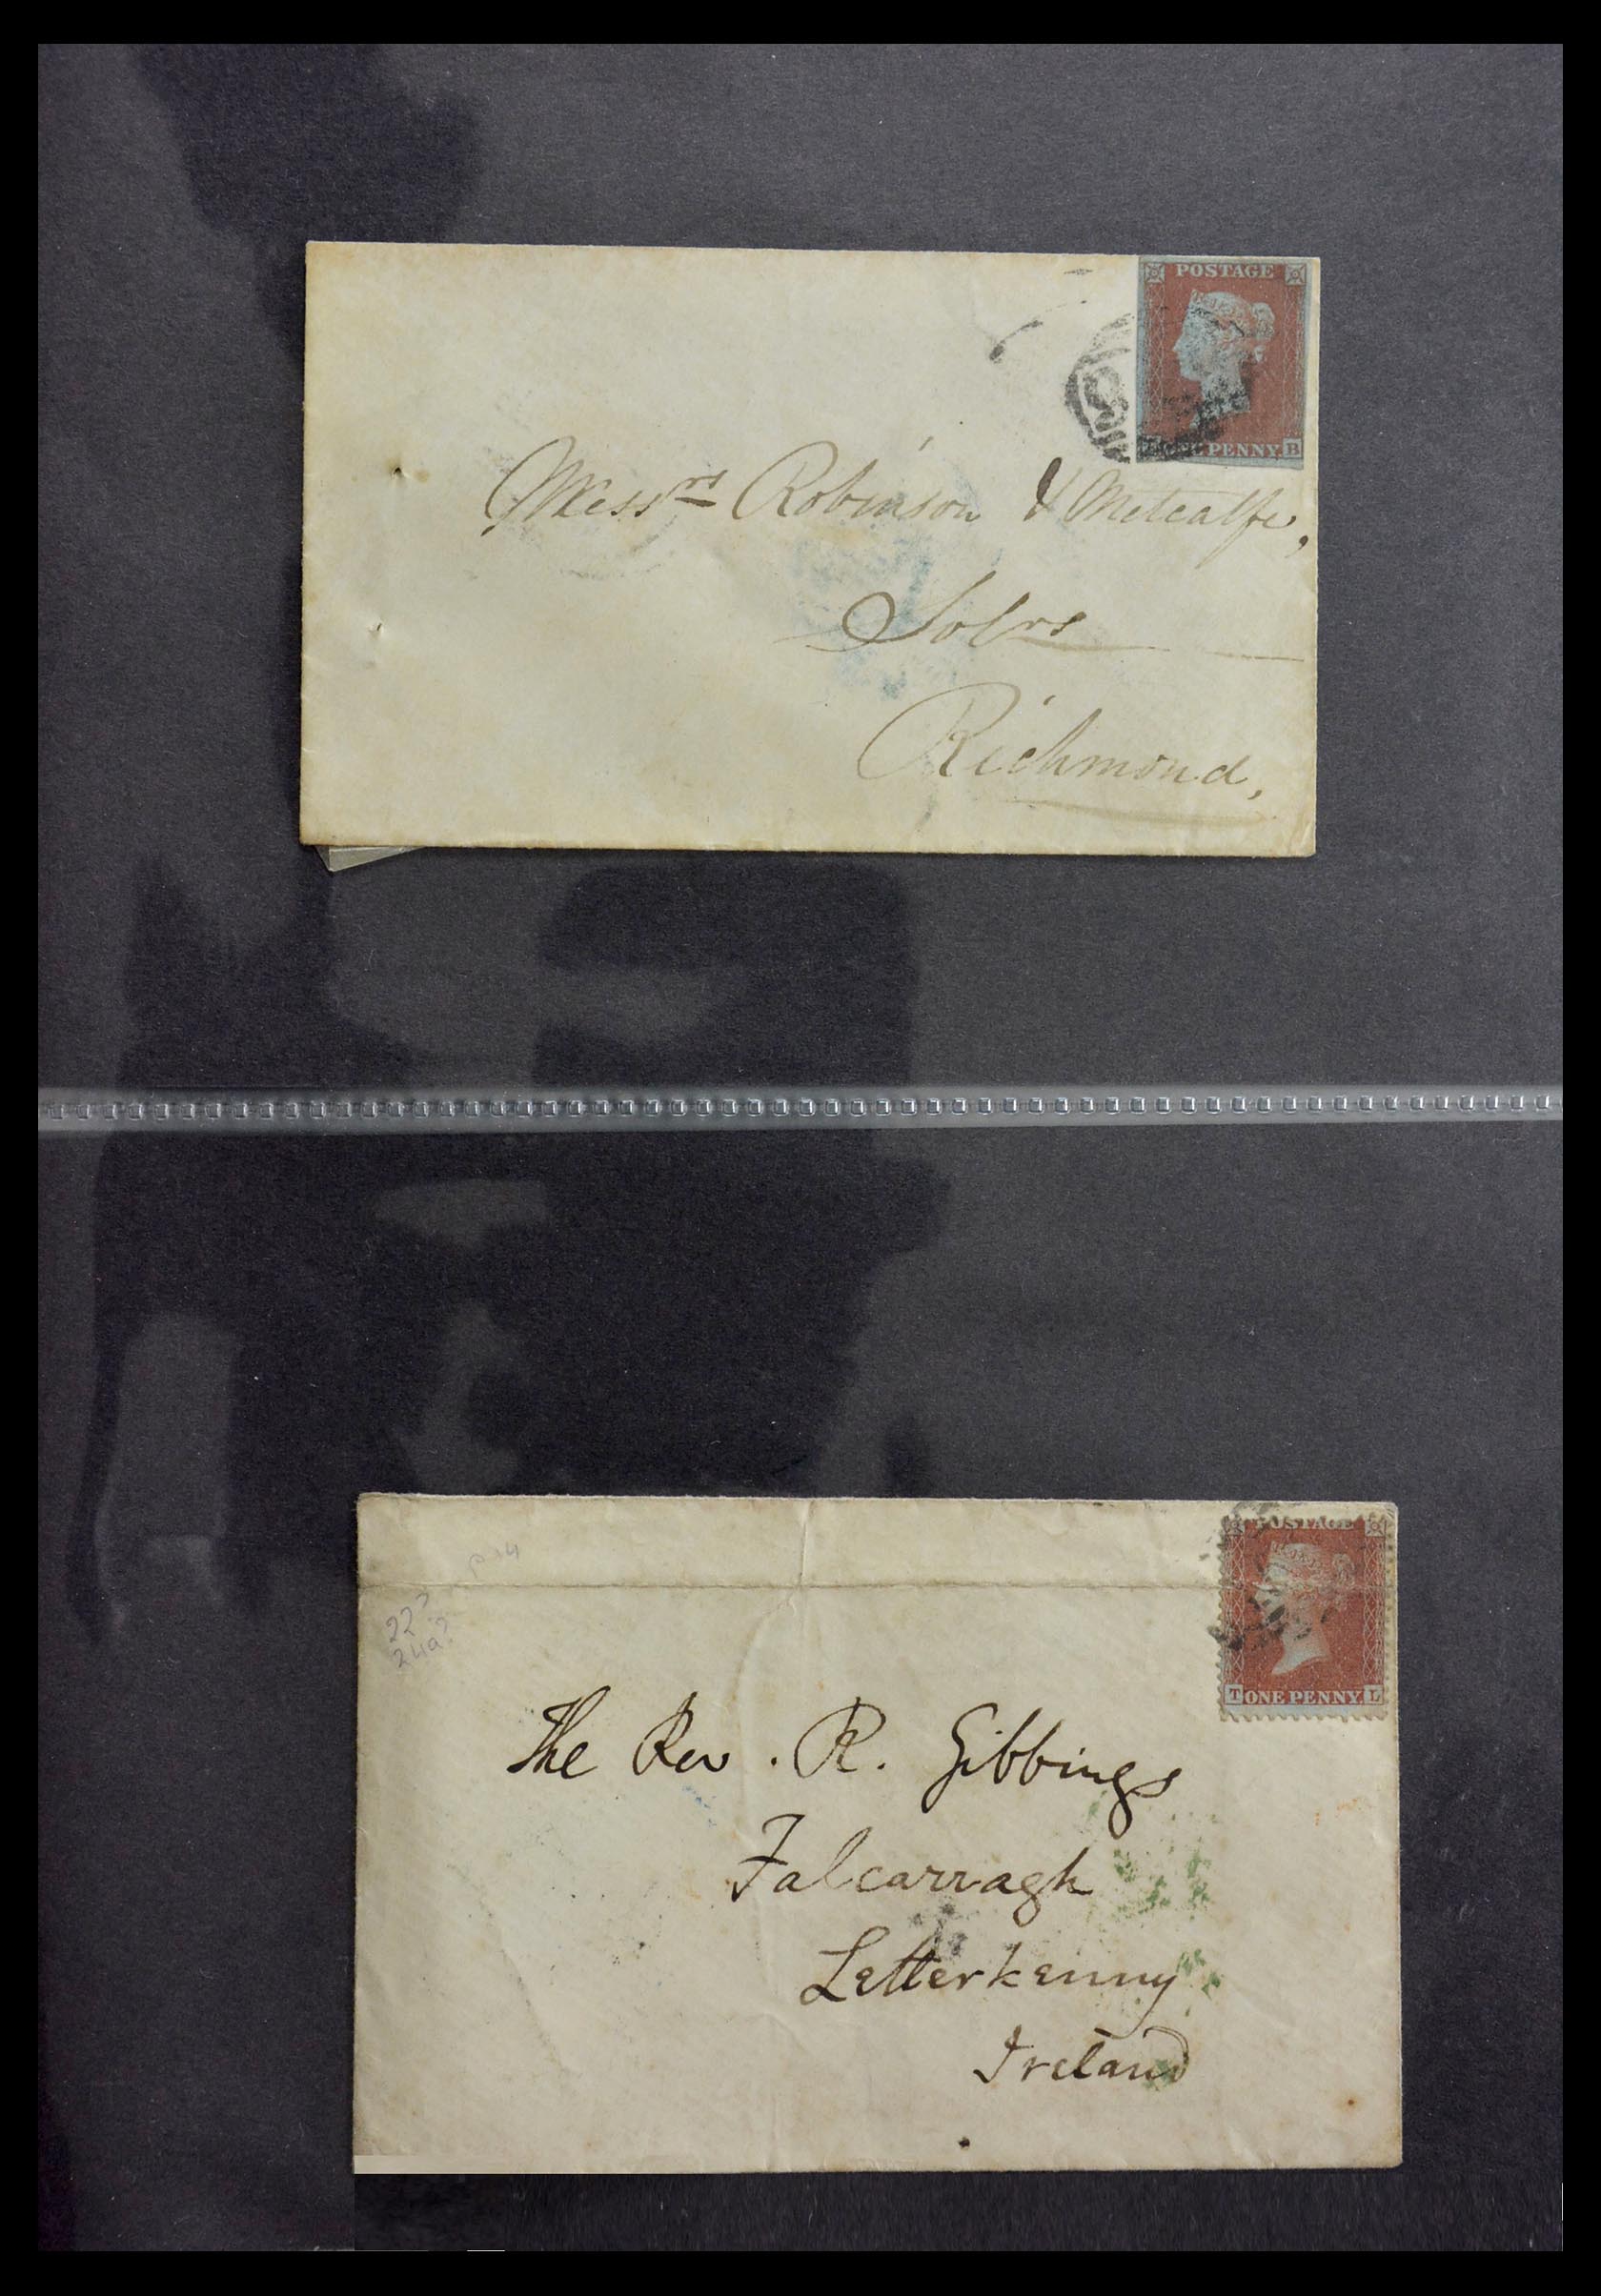 POSTAGE
PENNY B
Messrs Robinson & Metcalfe,
Solrs
Richmond,
POSTAGE
T ONE PENNY. L
P 14
22?
24a?
The Rev. R. Gibbings
Falcarragh
Letterkenny
Ireland